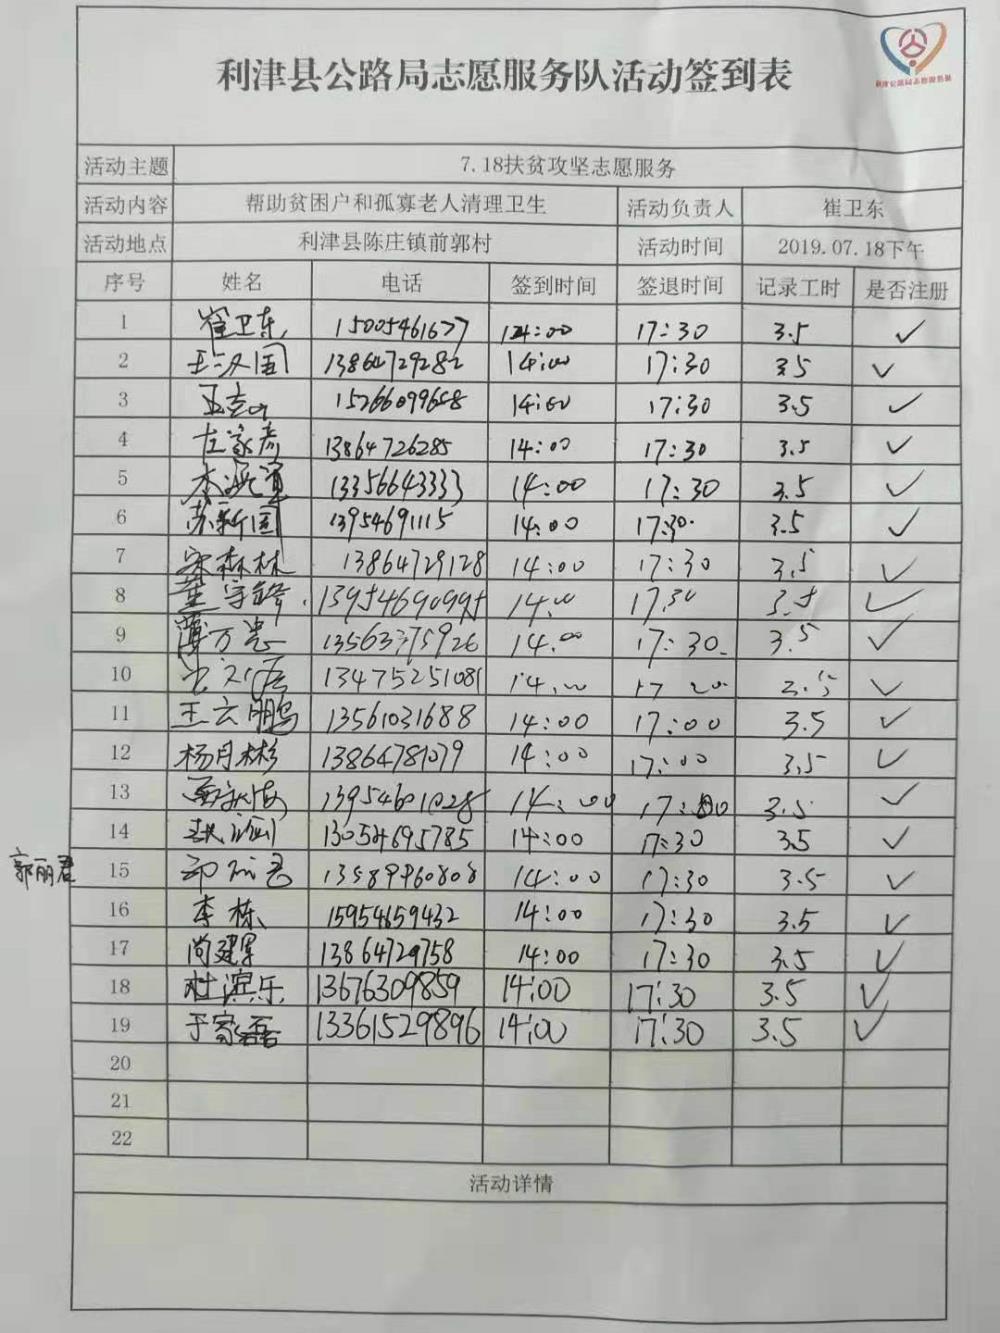 利津县公路局志愿服务队活动签到表
利津公路局志愿服务队
活动主题 7.18扶贫攻坚志愿服务
活动内容 帮助贫困户和孤寡老人清理卫生 活动负责人 崔卫东
活动地点 利津县陈庄镇前郭村 活动时间 2019.07.18下午
序号 姓名 电话 签到时间 签退时间 记录工时 是否注册
1 崔卫东 15005461677 14:00 17:30 3.5 ✓
2 13864729282 14:00 17:30 3.5 ✓
3 14:00 17:30 3.5 ✓
4 左家彦 13864726285 14:00 17:30 3.5 ✓
5 13356643333 14:00 17:30 3.5 ✓
6 苏新国 13954691115 14:00 17:30 3.5 ✓
7 宋森林 13864729128 14:00 17:30 3.5 ✓
8 14:00 17:30 3.5 ✓
9 薄万忠 13563375926 14:00 17:30 3.5 ✓
10 13475251081 14:00 ✓
11 王云鹏 13561031688 14:00 17:00 3.5 ✓
12 杨月彬 13864781079 14:00 17:00 3.5 ✓
13 13954601028 14:00 17:00 3.5 ✓
14 13054695785 14:00 17:30 3.5 ✓
郭丽君 15 郭丽君 13589960808 14:00 17:30 3.5 ✓
16 李栋 15954659432 14:00 17:30 3.5 ✓
17 尚建军 13864729758 14:00 17:30 3.5 ✓
18 杜滨乐 13676309859 14:00 17:30 3.5 ✓
19 于家磊 13361529896 14:00 17:30 3.5 ✓
20
21
22
活动详情